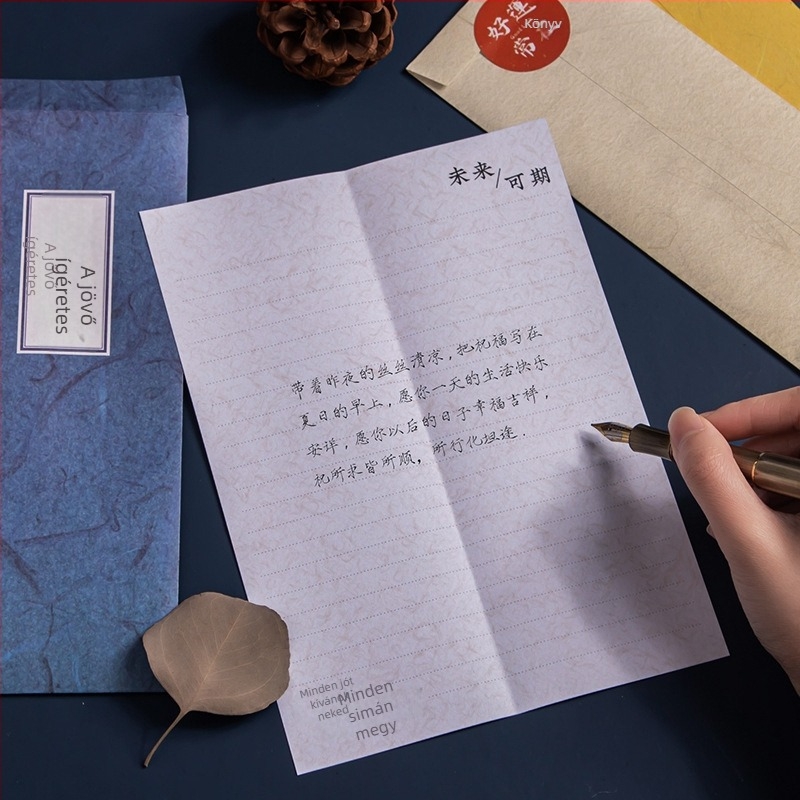 好運
常
Könyv
未来/可期
A jövő
ígéretes
A jövő
ígéretes
带着昨夜的丝丝清凉,把祝福写在
夏日的早上,愿你一天的生活快乐
安详,愿你以后的日子幸福吉祥,
祝所求皆所愿,所行化坦途.
Minden jót
kívánok
neked
Minden
simán
megy